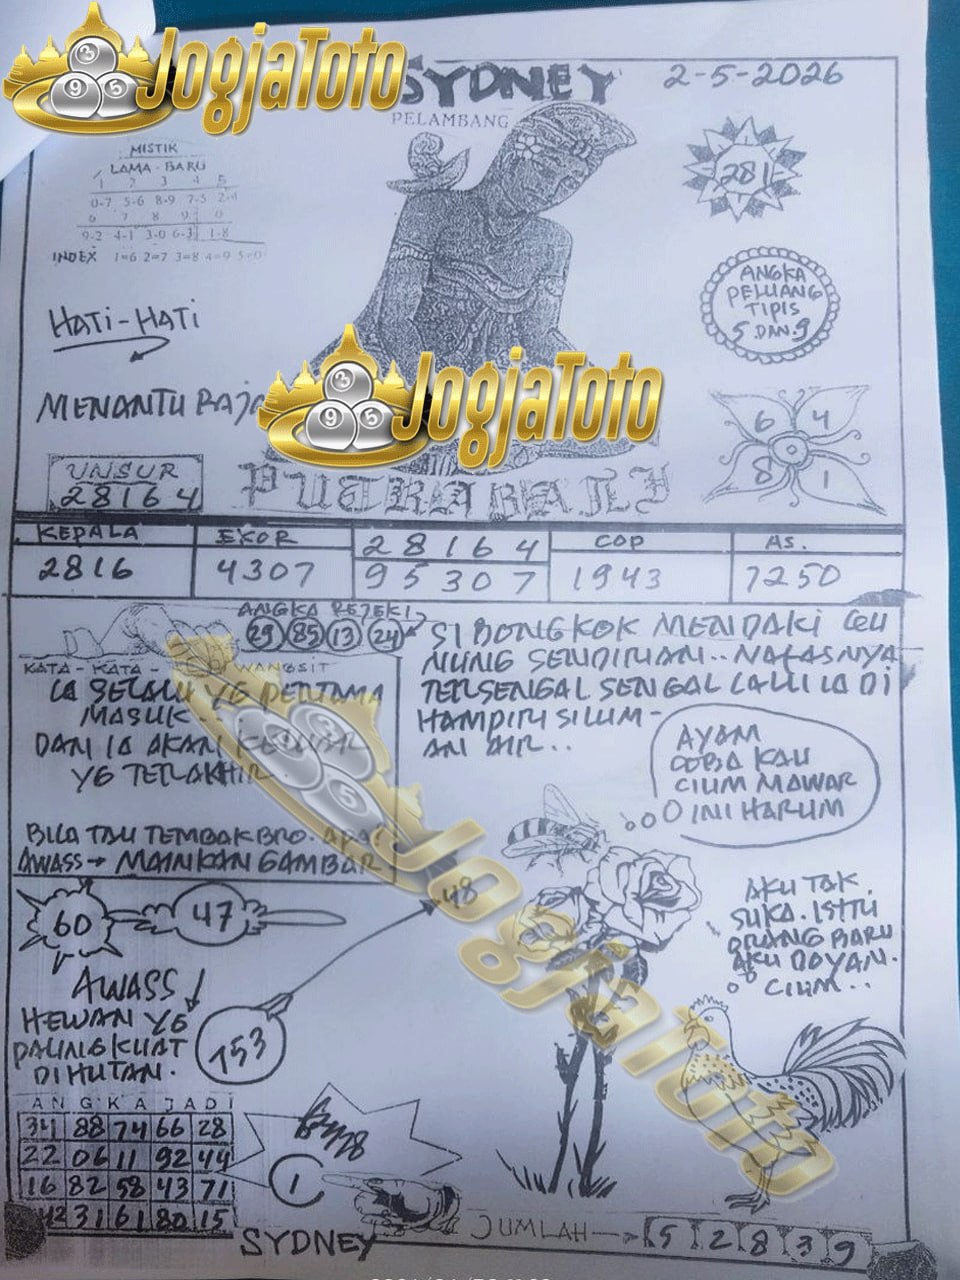 JogjaToto
SYDNEY
2-5-2026
PELAMBANG
MISTIK
LAMA - BARU
1 2 3 4 5
0-7 5-6 8-9 7-5 2-4
6 7 8 9 0
9-2 4-1 3-0 6-3 1-8
INDEX 1=6 2=7 3=8 4=9 5=0
281
ANGKA
PELUANG
TIPIS
5 DAN 9
HATI-HATI
MENANTU RAJA
JogjaToto
6 4
8 1
UNSUR
28164
PUTRA BALI
KEPALA
2816
EKOR
4307
28164
95307
COP
1943
AS.
7250
ANGKA REJEKI
29 85 13 24
KATA - KATA - WANGSIT
IA SELALU YG PERTAMA
MASUK..
DAN IA AKAN KELUAR
YG TERAKHIR
BILA TAU TEMBAK BRO.
AWASS → MAINKAN GAMBAR
SI BONGKOK MENDAKI GU
NUNG SENDIRIAN.. NAFASNYA
TERSENGAL SENGAL LALU IA DI
HAMPIRI SILUM-
AN AIR..
AYAM
COBA KAU
CIUM MAWAR
INI HARUM
JogjaToto
60
47
48
AKU TAK
SUKA. ISTRI
ORANG BARU
AKU DOYAN.
CIUM..
AWASS
HEWAN YG
PALING KUAT
DIHUTAN.
753
ANGKA JADI
34 88 74 66 28
22 06 11 92 44
16 82 58 43 71
42 31 61 80 15
1
SYDNEY
JUMLAH
5 2 8 3 9